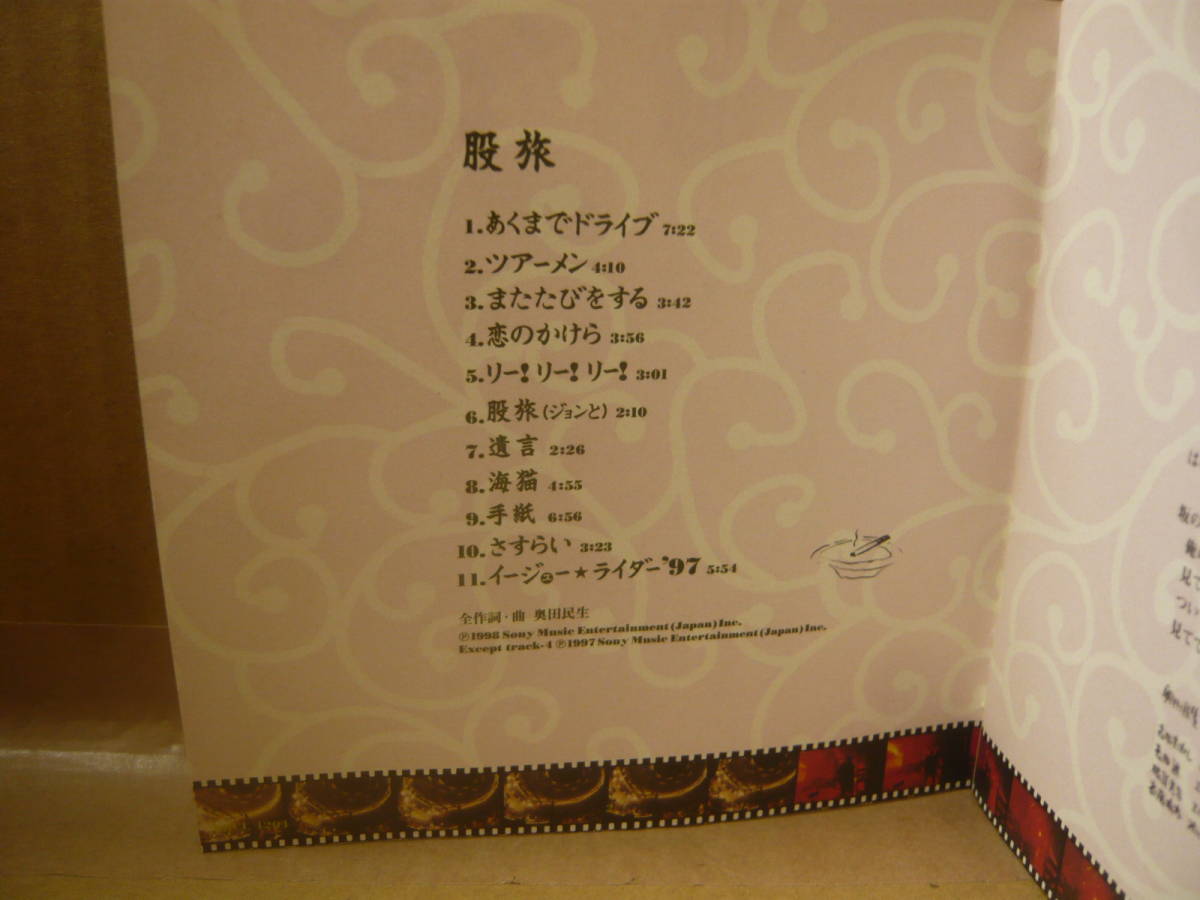 股旅
1.あくまでドライブ 7:22
2.ツアーメン 4:10
3.またたびをする 3:42
4.恋のかけら 3:56
5.リー!リー!リー! 3:01
6.股旅(ジョンと) 2:10
7.遺言 2:26
8.海猫 4:55
9.手紙 6:56
10.さすらい 3:23
11.イージュー★ライダー'97 5:54
全作詞・曲 奥田民生
℗1998 Sony Music Entertainment (Japan) Inc.
Except track-4 ℗1997 Sony Music Entertainment (Japan) Inc.
は
坂の
俺
見て
つい
見てて